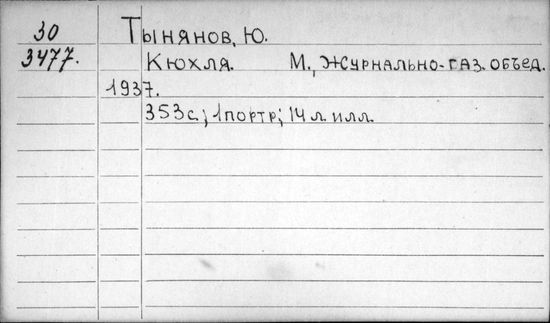 30 Тынянов, Ю.
3477. Кюхля. М., Журнально-газ. объед.
1937.
353 с.; 1 портр; 14 л. илл.